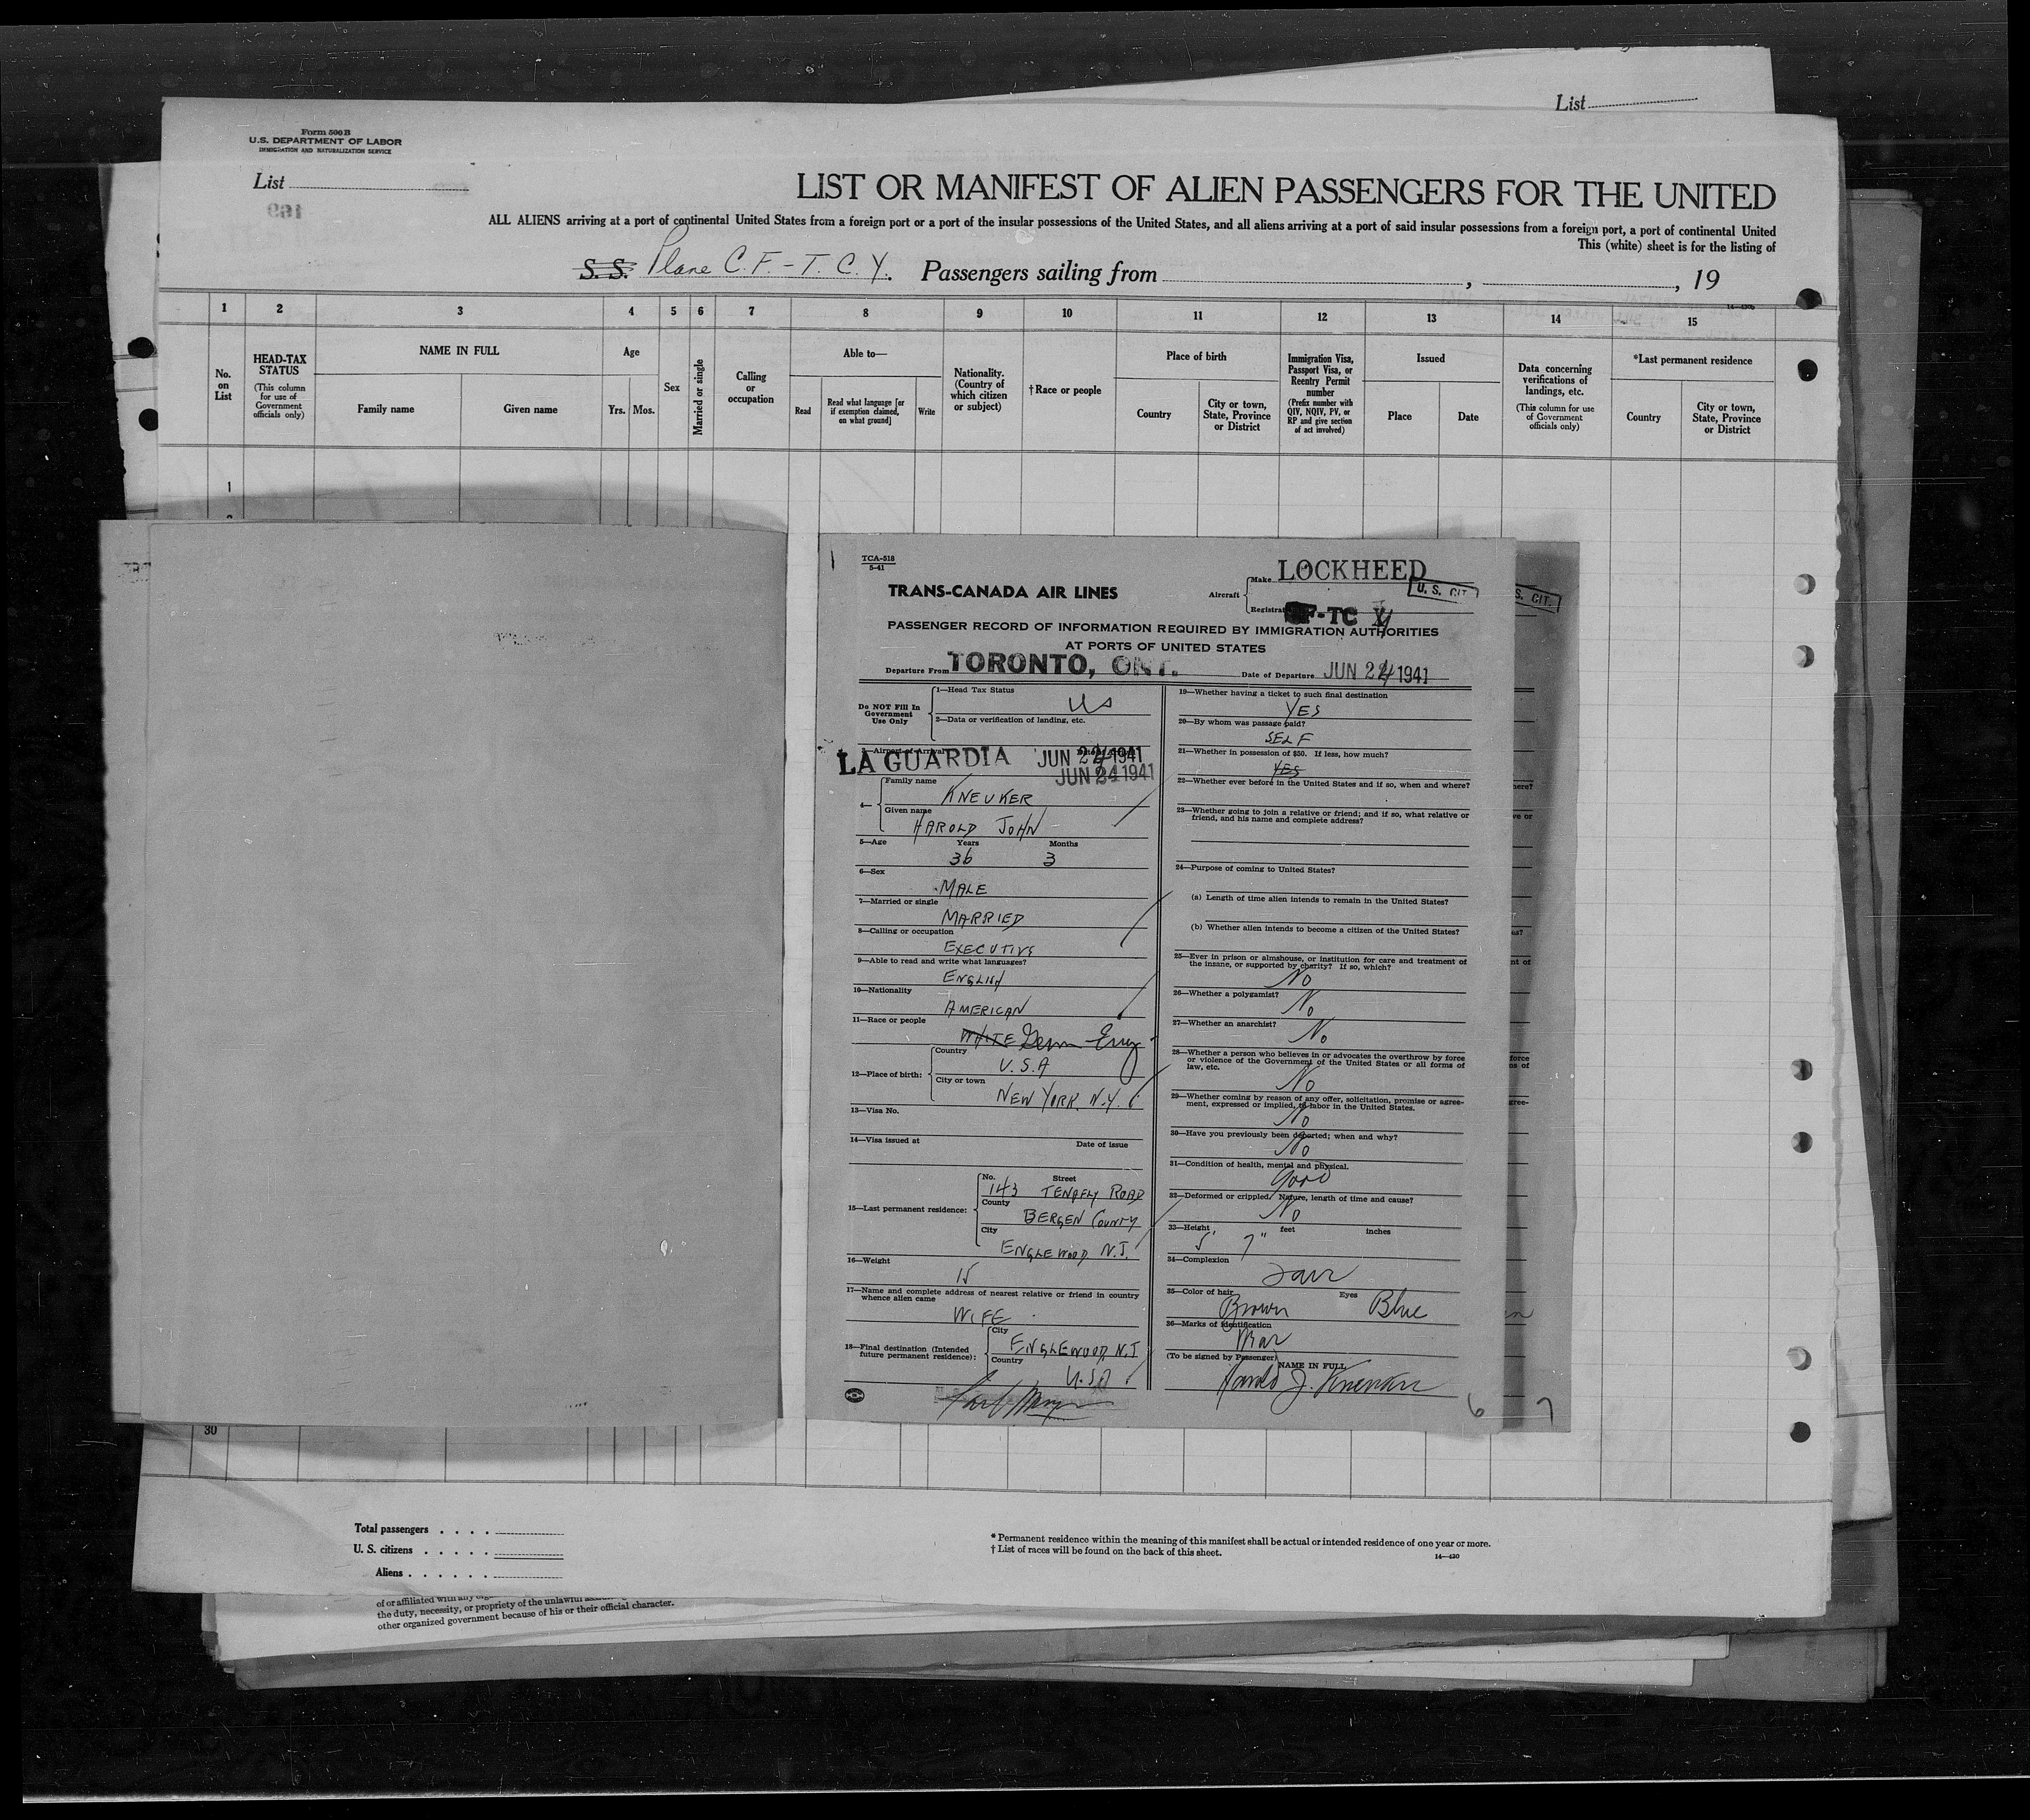 List
Form 500B
U.S. DEPARTMENT OF LABOR
IMMIGRATION AND NATURALIZATION SERVICE
List
LIST OR MANIFEST OF ALIEN PASSENGERS FOR THE UNITED
ALL ALIENS arriving at a port of continental United States from a foreign port or a port of the insular possessions of the United States, and all aliens arriving at a port of said insular possessions from a foreign port, a port of continental United
This (white) sheet is for the listing of
S. S. Plane C.F.-T.C.Y. Passengers sailing from , , 19
1 2 3 4 5 6 7 8 9 10 11 12 13 14 15
No. on List
HEAD-TAX STATUS
(This column for use of Government officials only)
NAME IN FULL
Family name Given name
Age
Yrs. Mos.
Sex
Married or single
Calling or occupation
Able to—
Read
Read what language [or if exemption claimed, on what ground]
Write
Nationality. (Country of which citizen or subject)
†Race or people
Place of birth
Country
City or town, State, Province or District
Immigration Visa, Passport Visa, or Reentry Permit number
(Prefix number with QIV, NQIV, PV, or RP and give section of act involved)
Issued
Place Date
Data concerning verifications of landings, etc.
(This column for use of Government officials only)
*Last permanent residence
Country
City or town, State, Province or District
1
TCA-518
5-41
TRANS-CANADA AIR LINES
Aircraft
Make LOCKHEED
U. S. CIT.
S. CIT.
CF-TC Y
PASSENGER RECORD OF INFORMATION REQUIRED BY IMMIGRATION AUTHORITIES
AT PORTS OF UNITED STATES
Departure From TORONTO, ONT. Date of Departure JUN 24 1941
Do NOT Fill In Government Use Only
1—Head Tax Status
US
2—Data or verification of landing, etc.
3—Airport of Arrival
LA GUARDIA JUN 24 1941
JUN 24 1941
4—
Family name
KNEUKER
Given name
HAROLD JOHN
5—Age Years Months
36 3
6—Sex
MALE
7—Married or single
MARRIED
8—Calling or occupation
EXECUTIVE
9—Able to read and write what languages?
ENGLISH
10—Nationality
AMERICAN
11—Race or people
WHITE Germ Eng
12—Place of birth:
Country
U.S.A
City or town
NEW YORK, N.Y.
13—Visa No.
14—Visa issued at Date of issue
15—Last permanent residence:
No. Street
143 TENAFLY ROAD
County
BERGEN COUNTY
City
ENGLEWOOD N.J.
16—Weight
15
17—Name and complete address of nearest relative or friend in country whence alien came
WIFE
18—Final destination (Intended future permanent residence):
City
ENGLEWOOD, N.J
Country
U.SA
19—Whether having a ticket to such final destination
YES
20—By whom was passage paid?
SELF
21—Whether in possession of $50. If less, how much?
YES
22—Whether ever before in the United States and if so, when and where?
23—Whether going to join a relative or friend; and if so, what relative or friend, and his name and complete address?
24—Purpose of coming to United States?
(a) Length of time alien intends to remain in the United States?
(b) Whether alien intends to become a citizen of the United States?
25—Ever in prison or almshouse, or institution for care and treatment of the insane, or supported by charity? If so, which?
No
26—Whether a polygamist?
No
27—Whether an anarchist?
No
28—Whether a person who believes in or advocates the overthrow by force or violence of the Government of the United States or all forms of law, etc.
No
29—Whether coming by reason of any offer, solicitation, promise or agreement, expressed or implied, to labor in the United States.
No
30—Have you previously been deported; when and why?
No
31—Condition of health, mental and physical.
Good
32—Deformed or crippled. Nature, length of time and cause?
No
33—Height feet inches
5' 7"
34—Complexion
Fair
35—Color of hair Eyes
Brown Blue
36—Marks of Identification
(To be signed by Passenger)
NAME IN FULL
Harold J. Kneuker
6 7
30
Total passengers
U. S. citizens
Aliens
* Permanent residence within the meaning of this manifest shall be actual or intended residence of one year or more.
† List of races will be found on the back of this sheet.
14—430
the duty, necessity, or propriety of the unlawful
other organized government because of his or their official character.